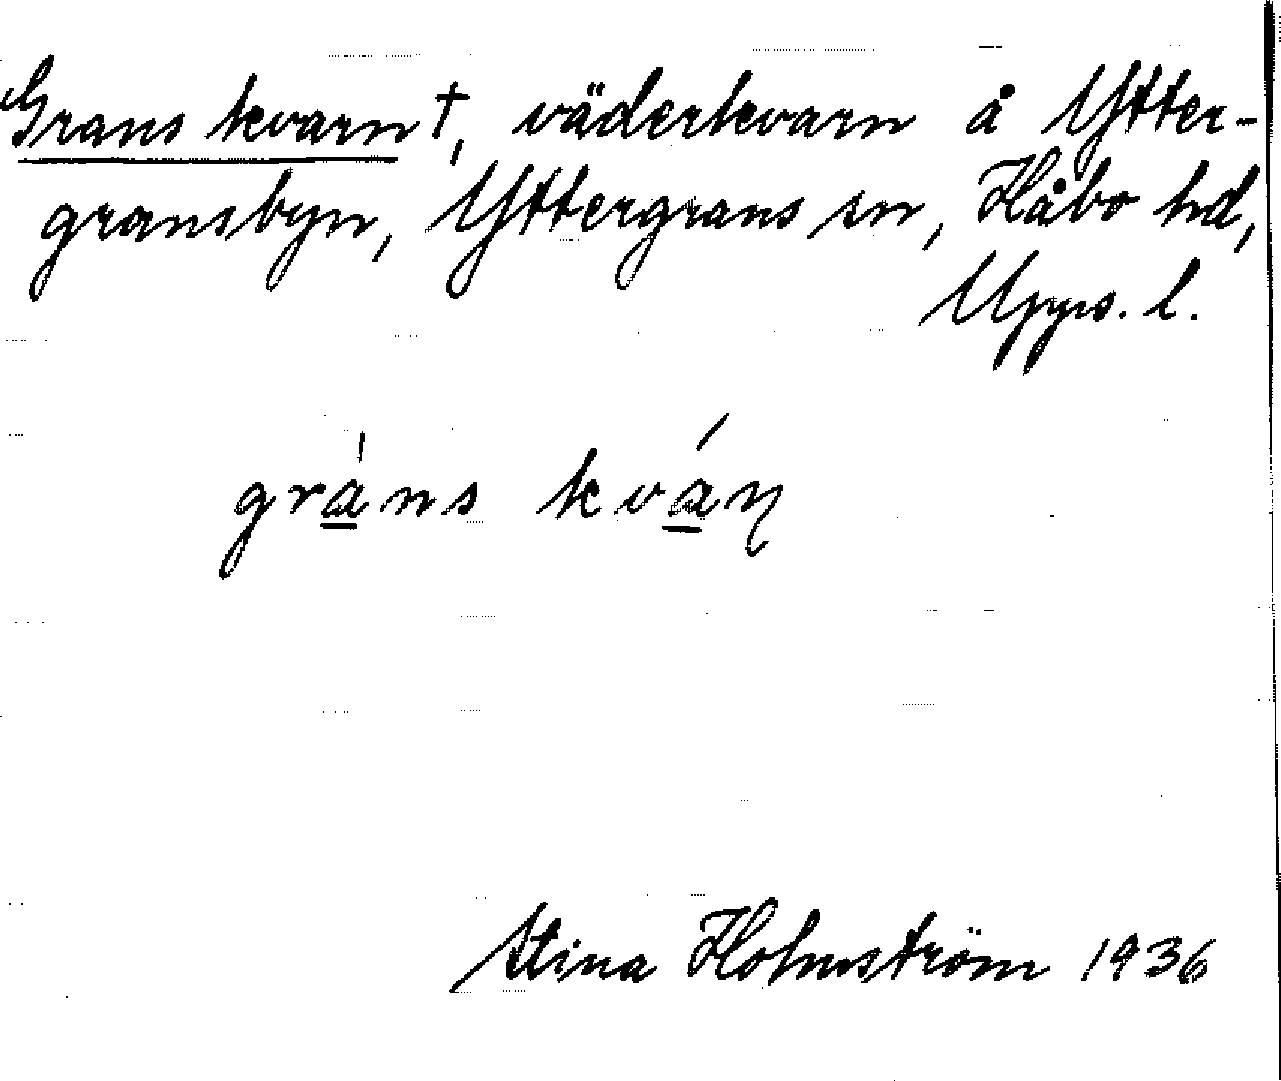 Grans kvarn †, väderkvarn å Ytter-
gransbyn, Yttergrans sn, Håbo hd,
Upps. l.
gra̲̍ns kvá̲ɳ
Stina Holmström 1936